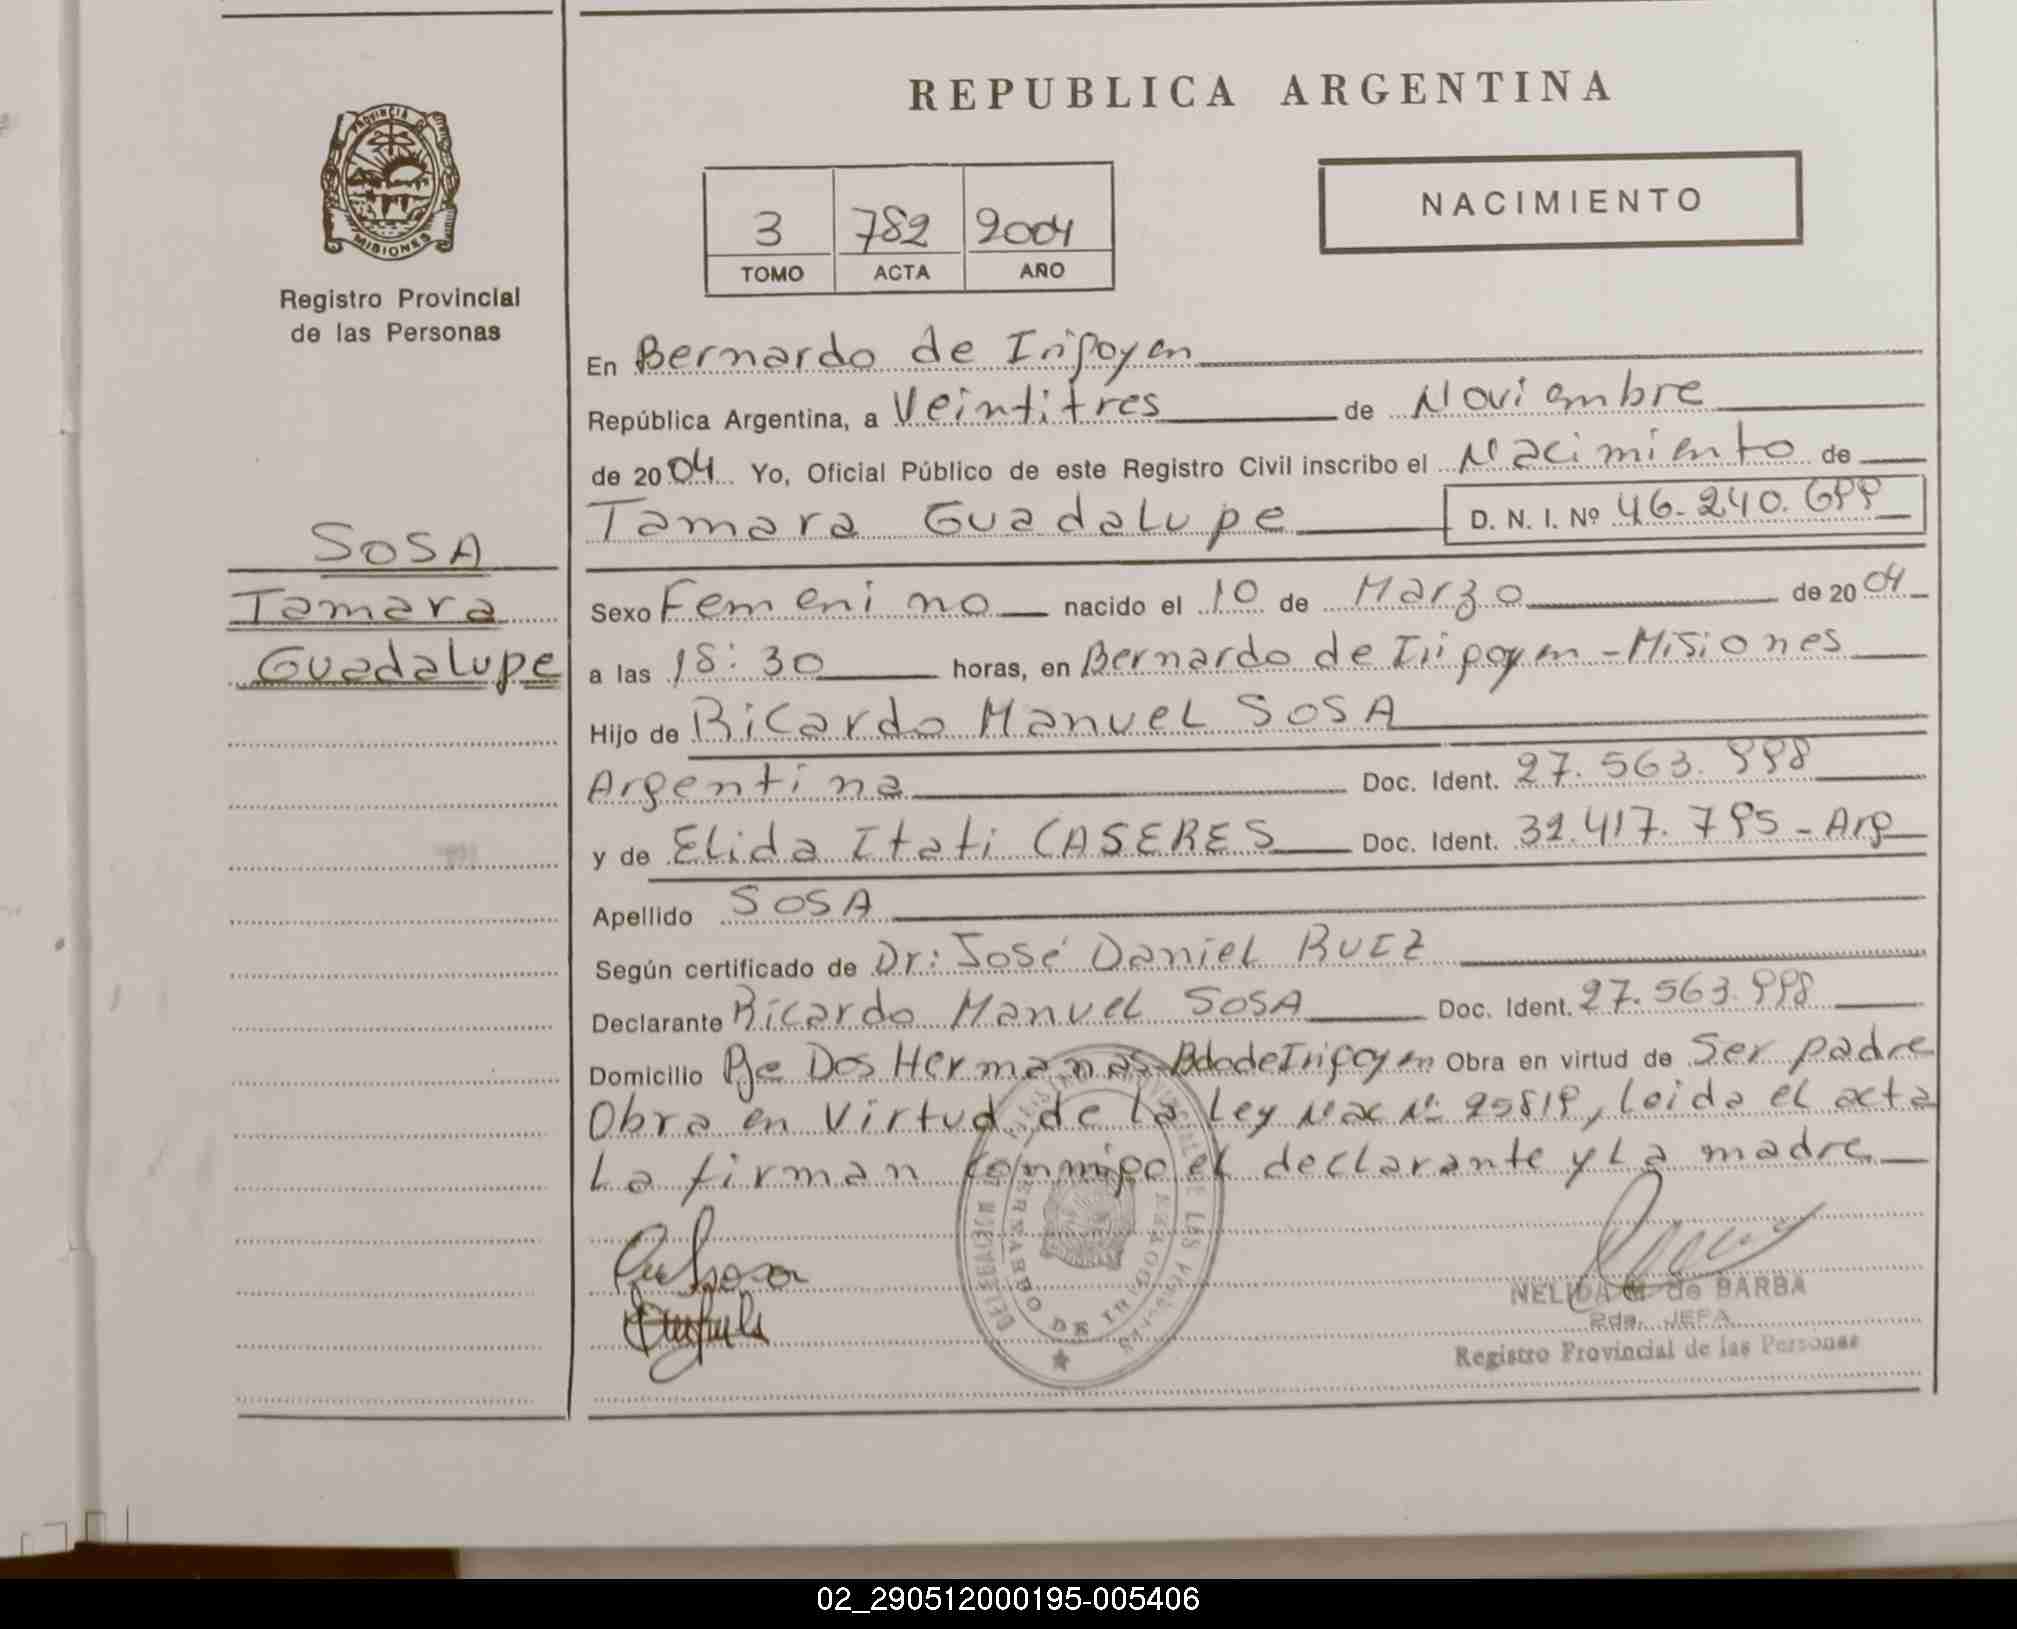 REPUBLICA ARGENTINA
PROVINCIA DE
MISIONES
Registro Provincial
de las Personas
3 782 2004
TOMO ACTA AÑO
NACIMIENTO
En Bernardo de Irigoyen
República Argentina, a Veintitres de Noviembre
de 2004 Yo, Oficial Público de este Registro Civil inscribo el Nacimiento de
Tamara Guadalupe D. N. I. Nº 46.240.699
SOSA
Tamara
Guadalupe
Sexo Femenino nacido el 10 de Marzo de 2004
a las 18:30 horas, en Bernardo de Irigoyen - Misiones
Hijo de Ricardo Manuel SOSA
Argentina Doc. Ident. 27.563.998
y de Elida Itati CASERES Doc. Ident. 32.417.795 - Arg
Apellido SOSA
Según certificado de Dr: José Daniel RUIZ
Declarante Ricardo Manuel SOSA Doc. Ident. 27.563.998
Domicilio Pje Dos Hermanas Bdo de Irigoyen Obra en virtud de Ser padre
Obra en Virtud de la Ley Nac Nº 25819, leida el acta
La firman conmigo el declarante y La madre
BERNARDO DE IRIGOYEN
NELIDA de BARBA
2da. JEFA
Registro Provincial de las Personas
02_290512000195-005406